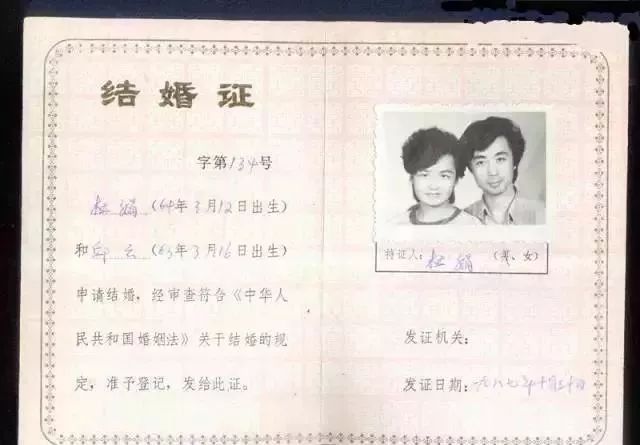 结婚证
字第134号
杜娟(64年3月12日出生)
和邱云(63年3月16日出生)
申请结婚，经审查符合《中华人
民共和国婚姻法》关于结婚的规
定，准予登记，发给此证。
持证人：杜娟（男、女）
发证机关：
发证日期：一九八七年十月三十日